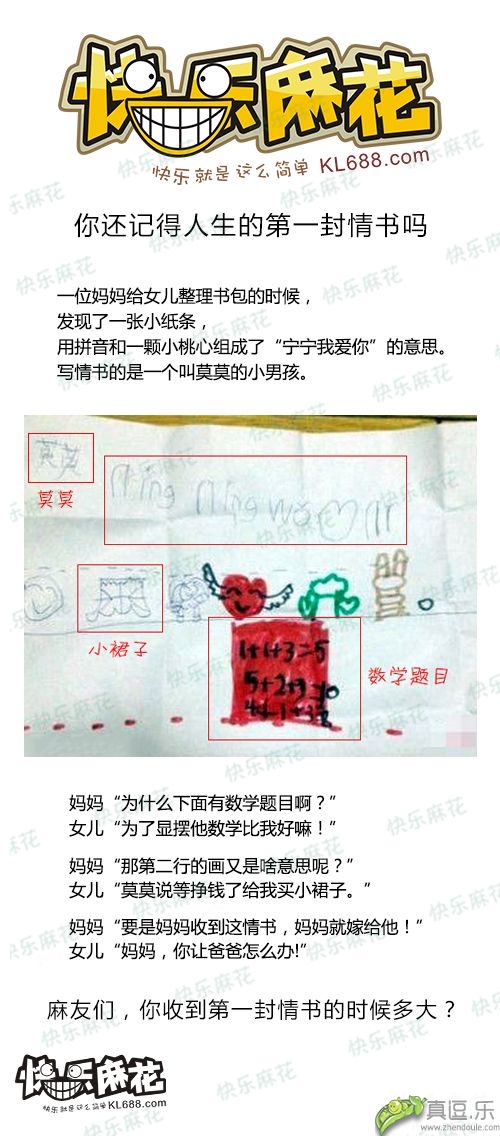 快乐麻花
快乐就是这么简单 KL688.com
你还记得人生的第一封情书吗
一位妈妈给女儿整理书包的时候，
发现了一张小纸条，
用拼音和一颗小桃心组成了“宁宁我爱你”的意思。
写情书的是一个叫莫莫的小男孩。
莫莫
ning ning wo ni
莫莫
小裙子
1+1+3=5
5+2+3=10
数学题目
妈妈“为什么下面有数学题目啊？”
女儿“为了显摆他数学比我好嘛！”
妈妈“那第二行的画又是啥意思呢？”
女儿“莫莫说等挣钱了给我买小裙子。”
妈妈“要是妈妈收到这情书，妈妈就嫁给他！”
女儿“妈妈，你让爸爸怎么办!”
麻友们，你收到第一封情书的时候多大？
快乐麻花
快乐就是这么简单KL688.com
真逗.乐
www.zhendoule.com